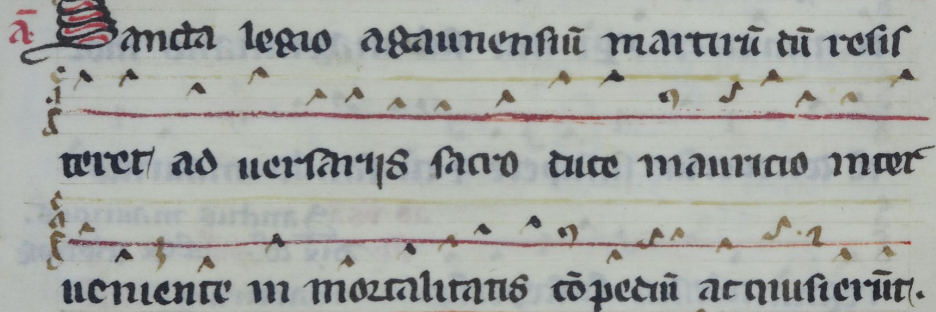 a̅ Sancta legio agaunensiu̅ martiru̅ du̅ resis
teret ad uersariis sacro duce mauricio inter
ueniente in mortalitatis co̅pediu̅ acquisieru̅t.